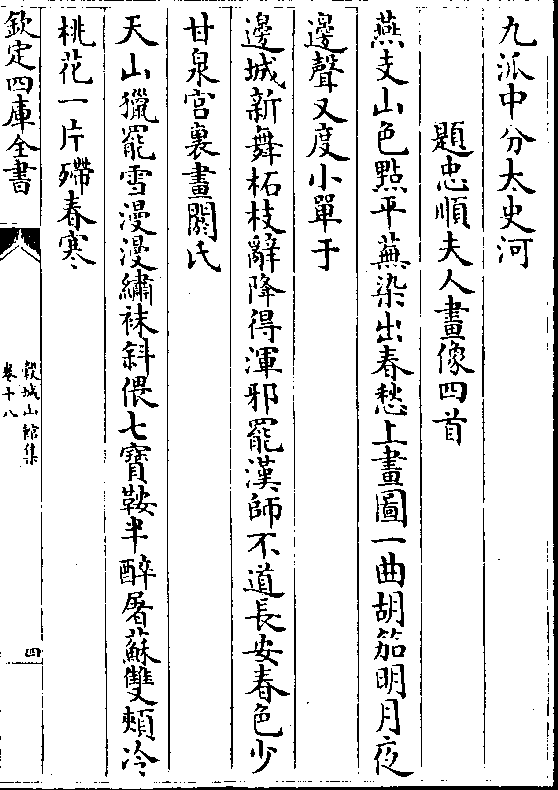 九派中分太史河
題忠順夫人畫像四首
燕支山色點平蕪染出春愁上畫圖一曲胡笳明月夜
邊聲又度小單于
邊城新舞柘枝辭降得渾邪罷漢師不道長安春色少
甘泉宮裏畫閼氏
天山獵罷雪漫漫繡袜斜偎七寶鞍半醉屠蘇雙頰冷
桃花一片殢春寒
欽定四庫全書
穀城山館集
卷十八
四